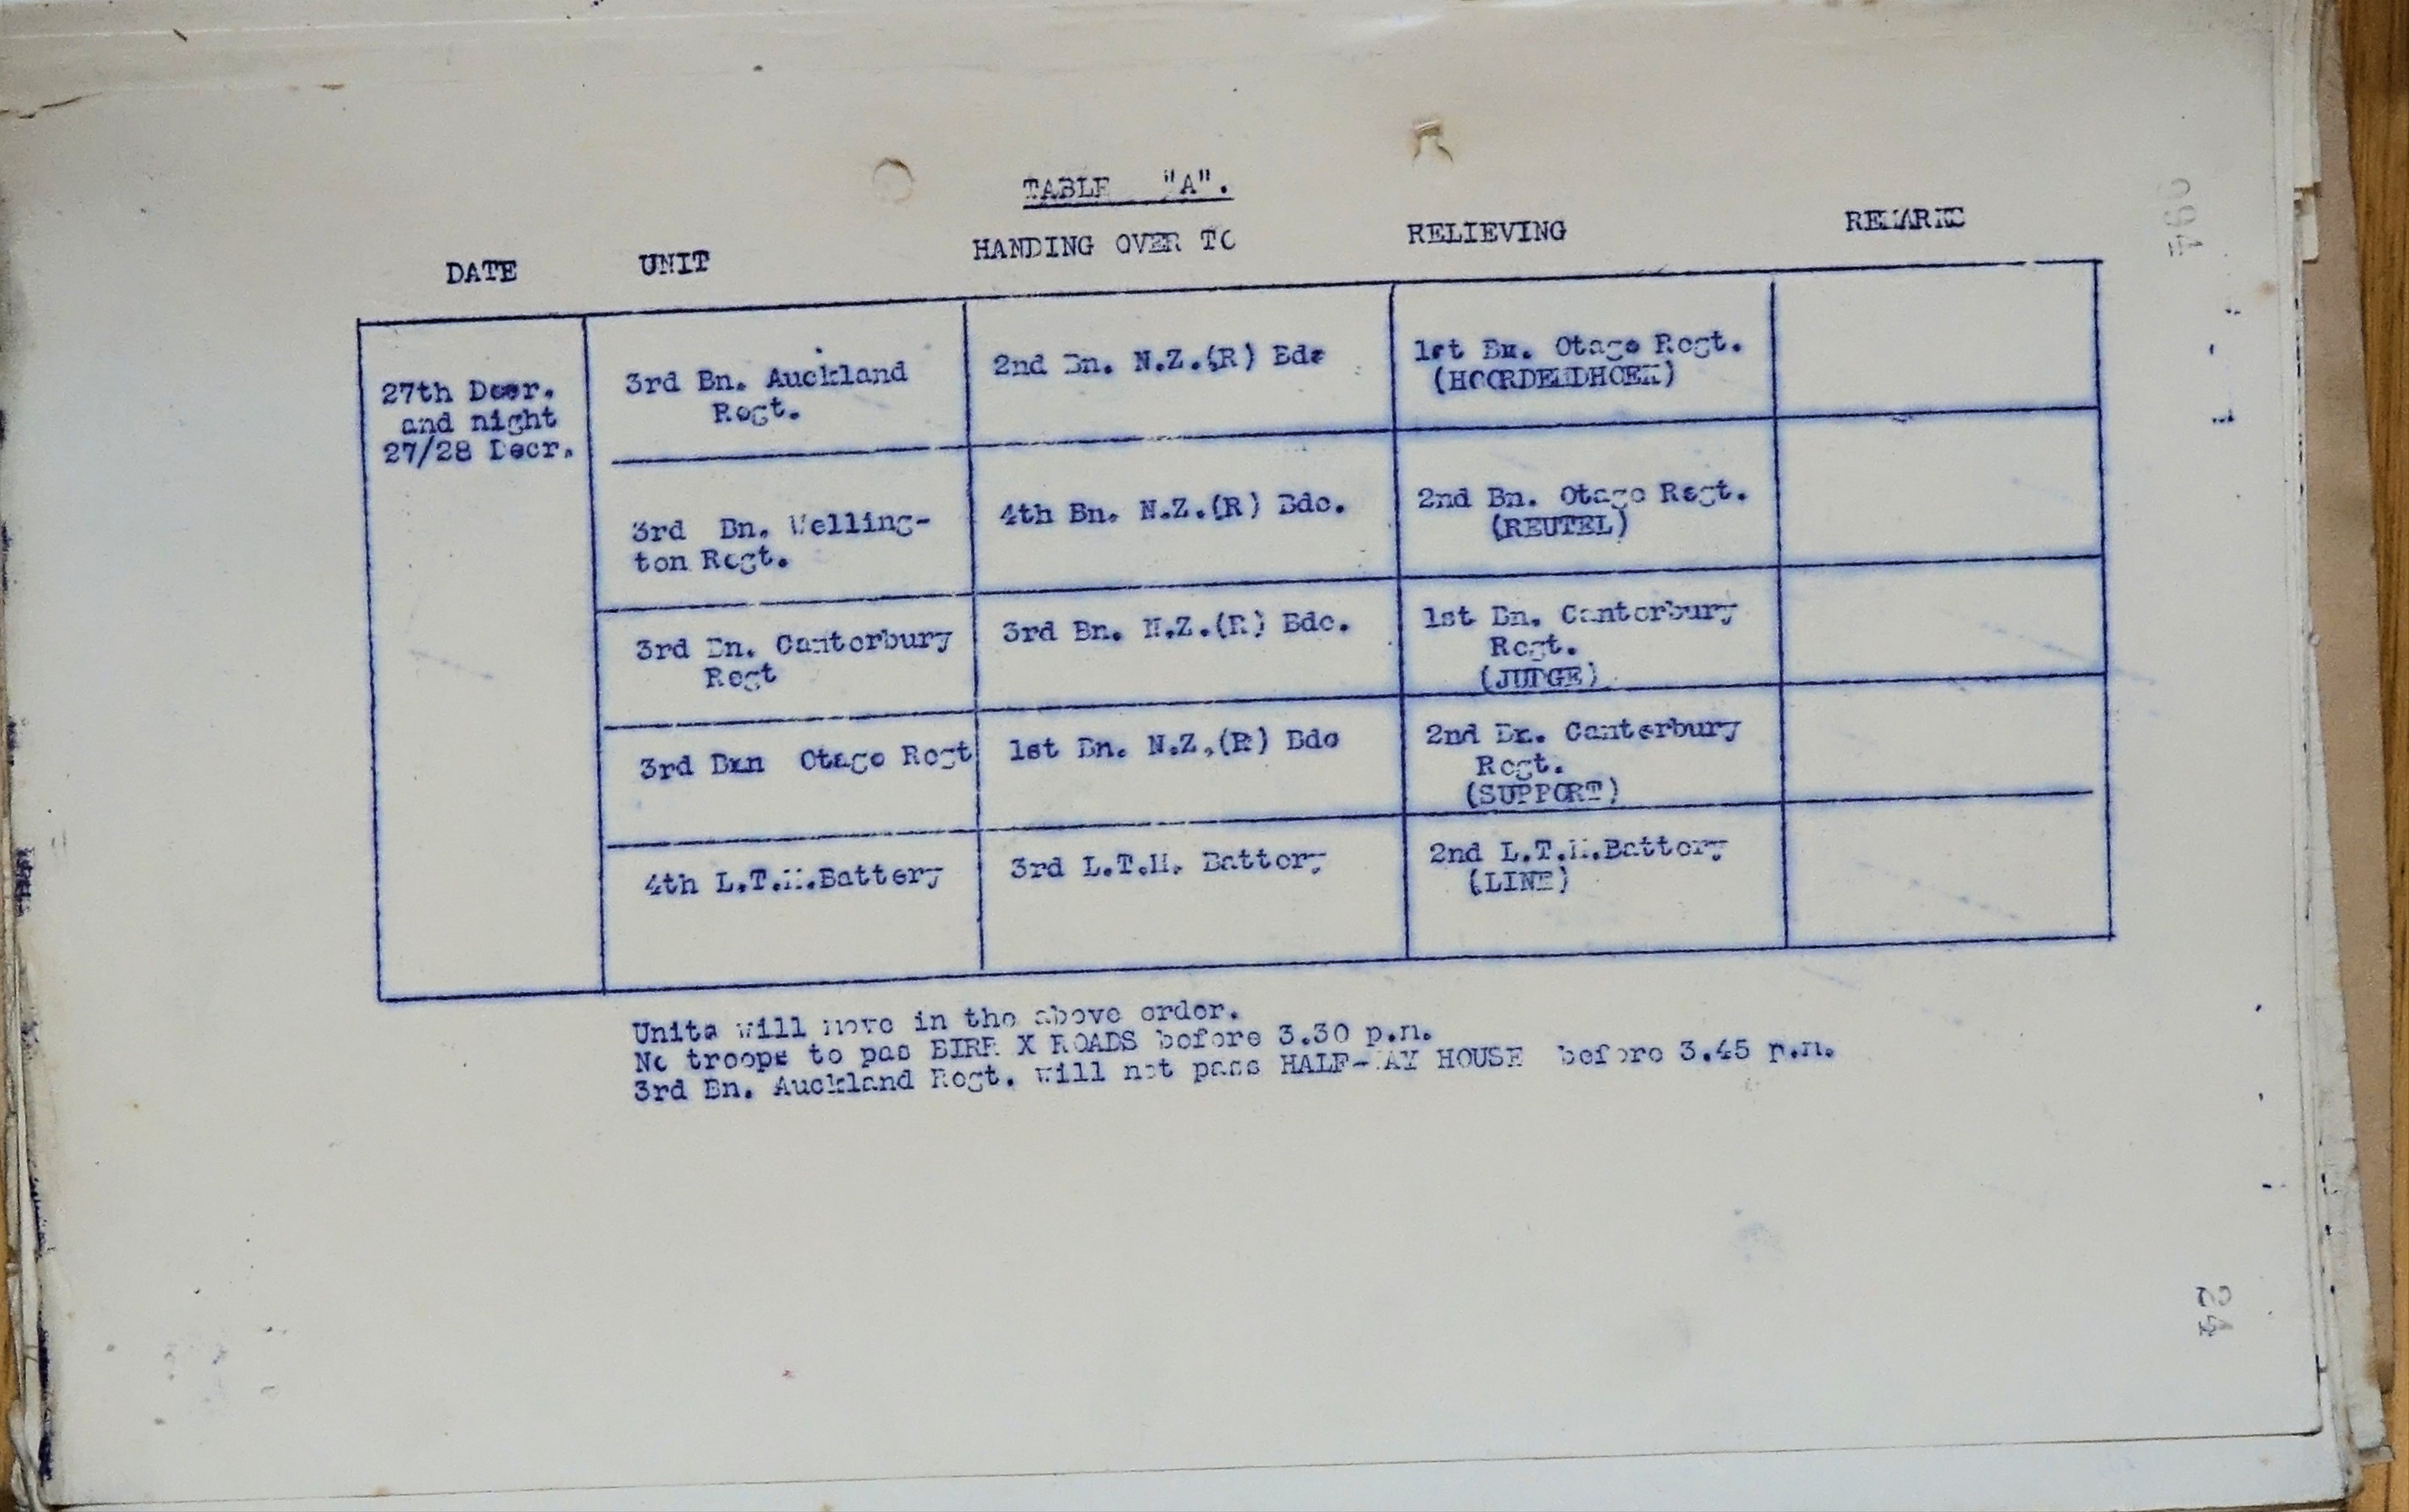 TABLE "A".
DATE UNIT HANDING OVER TO RELIEVING REMARKS
27th Decr.
and night
27/28 Decr.
3rd Bn. Auckland
Regt.
2nd Bn. N.Z.(R) Bde
1st Bn. Otago Regt.
3rd Bn. Welling-
ton Regt.
4th Bn. N.Z.(R) Bde.
2nd Bn. Otago Regt.
(REUTEL)
3rd Bn. Canterbury
Regt
3rd Bn. N.Z.(R) Bde.
1st Bn. Canterbury
Regt.
(JUDGE)
3rd Bxn Otago Regt
1st Bn. N.Z.(R) Bde
2nd Bn. Canterbury
Regt.
(SUPPORT)
4th L.T.M.Battery
3rd L.T.M. Battery
2nd L.T.M.Battery
(LINE)
Units will move in the above order.
No troops to pas BIRR X ROADS before 3.30 p.m.
3rd Bn. Auckland Regt. will not pass HALF-WAY HOUSE before 3.45 p.m.
24